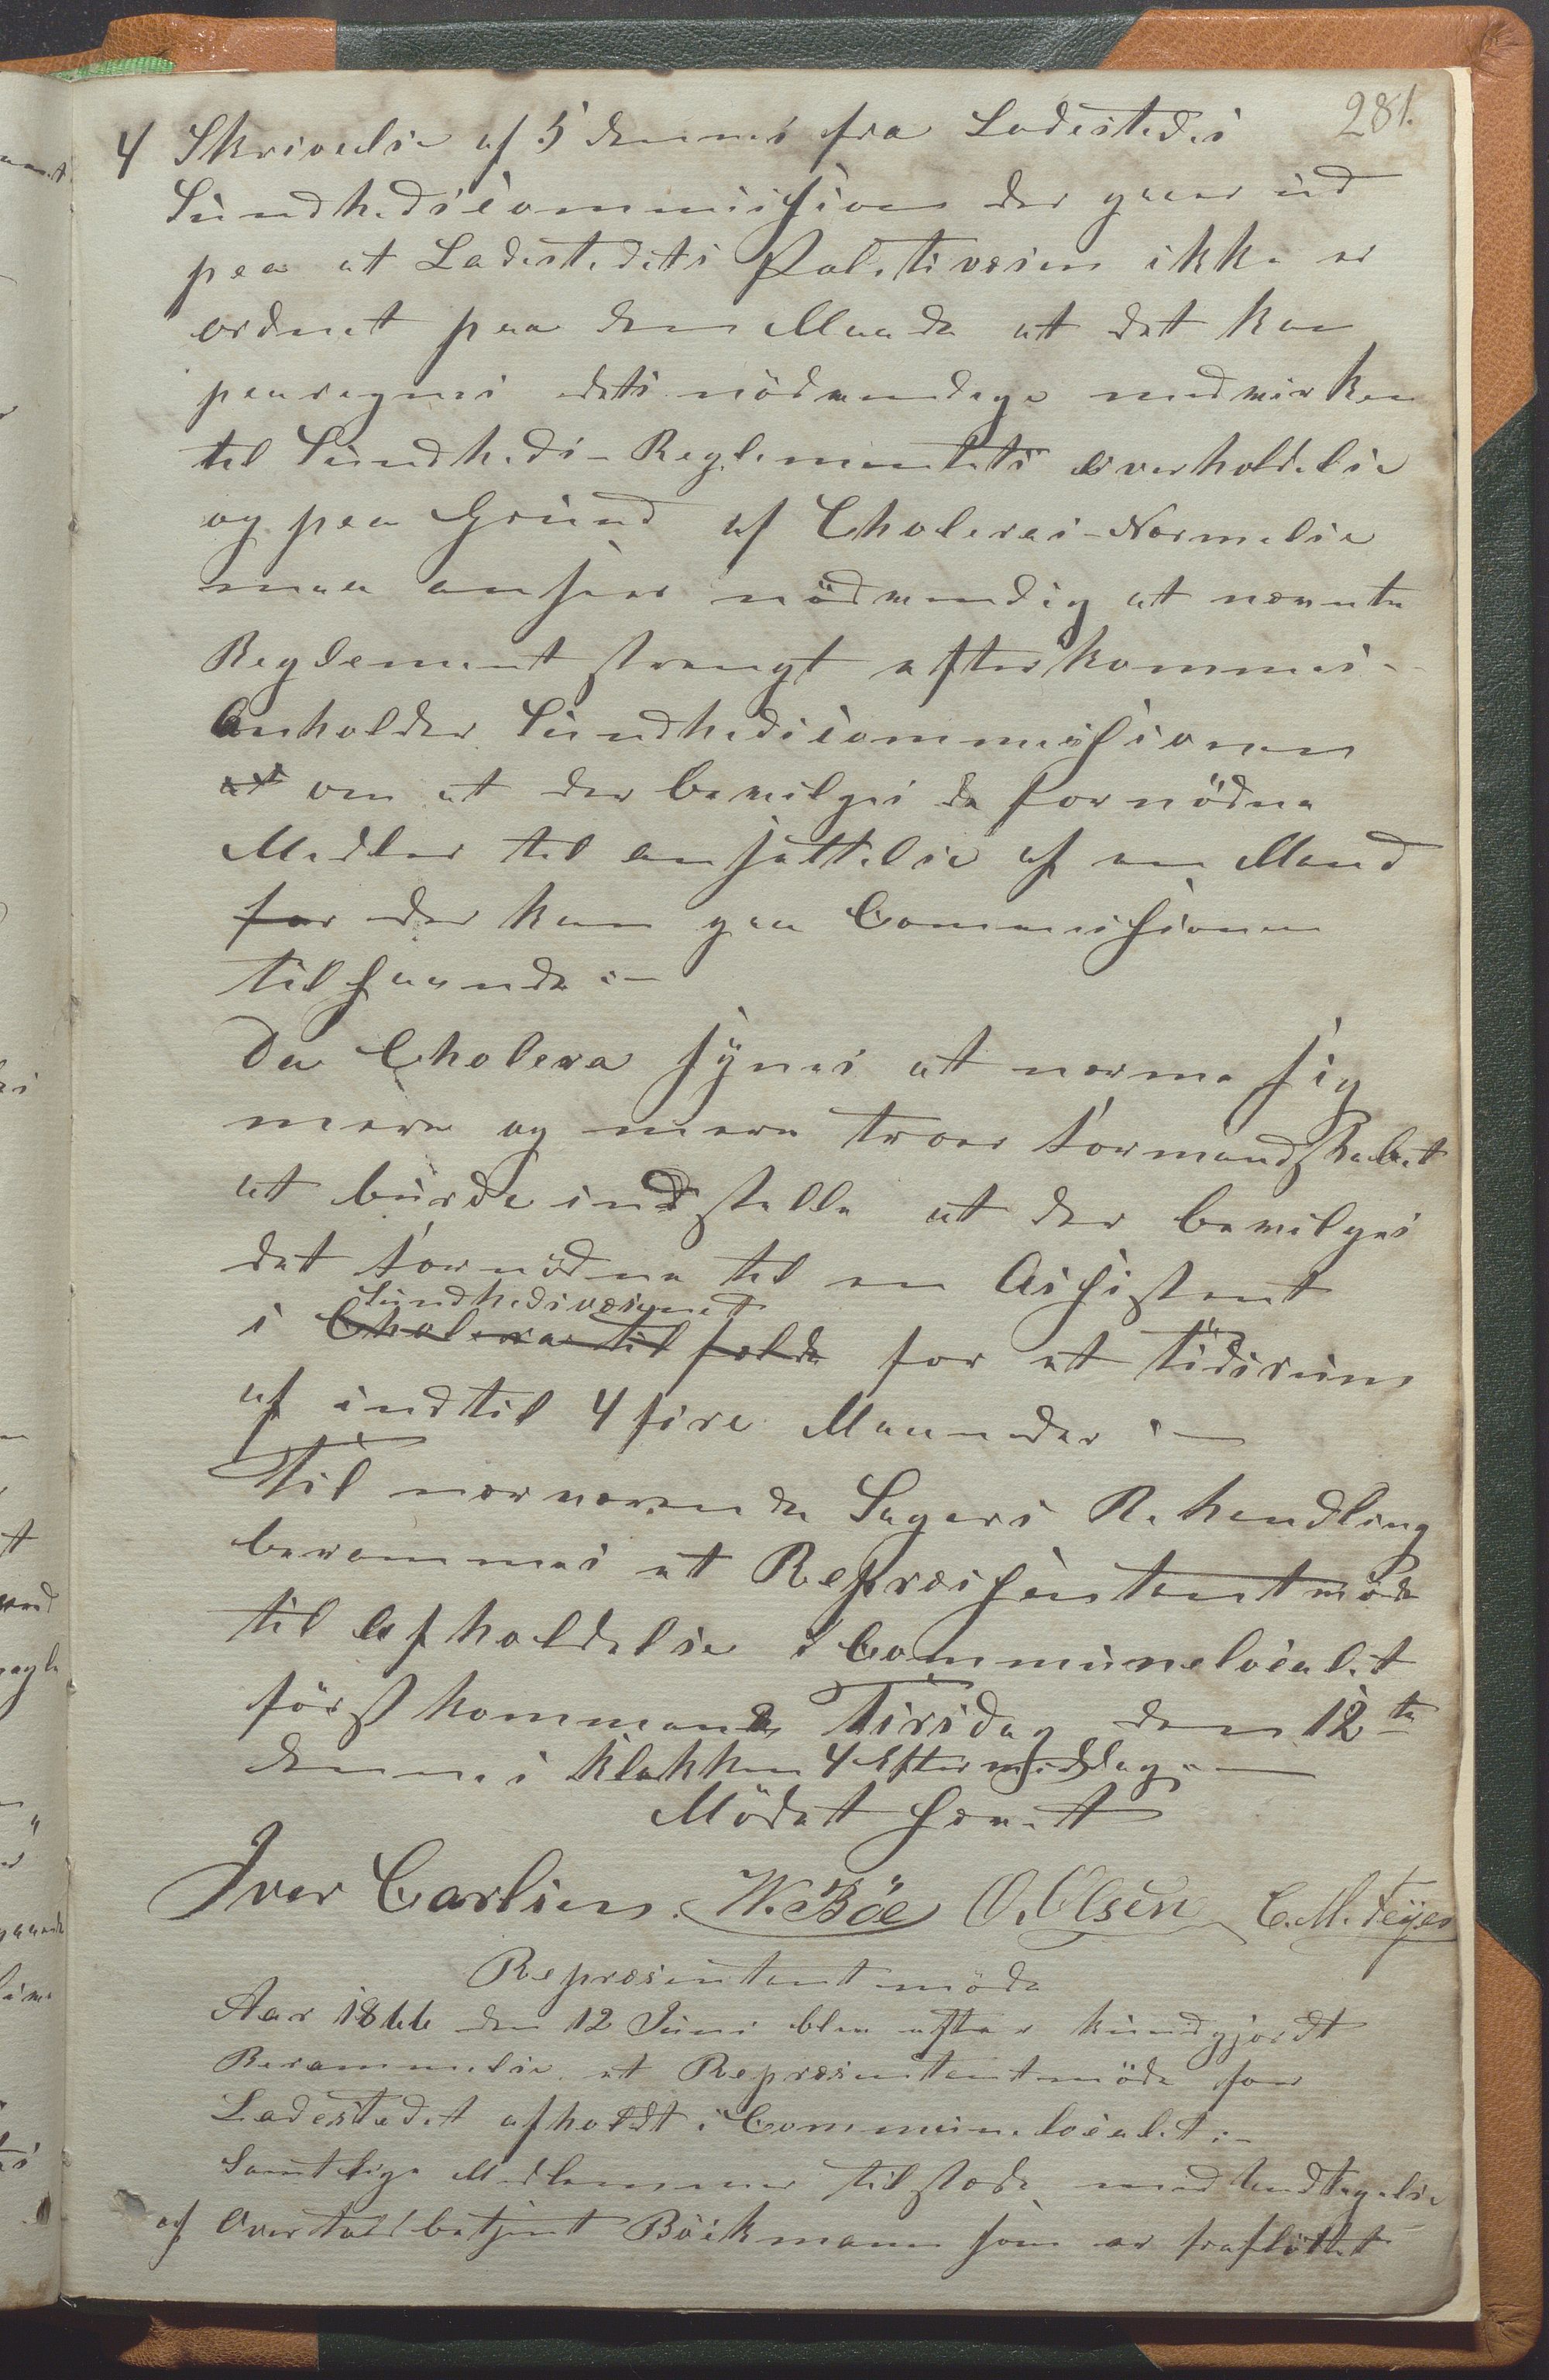 281.
4 Skrivelse af 5 dennes fra Ladestedes
Sundhedscommission der gaar ud
paa at Ladestedets Politivæsen ikke er
ordnet paa den Maade at det kan
paaregnes dets nödvendige medvirken
til Sundheds-Reglementets overholdelse
og paa Grund af Choleras-Nærmelse
maa ansees nödvendig at nævnte
Reglement strengt efterkommes -
Anholder Sundhedscommissionen
at om at der bevilges de fornödne
Midler til ansættelse af en Mand
for der kan gaa Commissionen
tilhaande:-
Da Cholera synes at nærme sig
mere og mere troer Formandskabet
at burde indstille at der bevilges
det fornödne til en Assistent
Sundhedsvæsenet
i Cholera tilfælde for et Tidsrum
af indtil 4 fire Maaneder :-
Til nærværende Sagers Behandling
berammes et Repræsentantmöde
til Afholdelse i Communelocalet
förstkommende Tirsdag den 12te
dennes Klokken 4 Eftermiddag:-
Mödet hævet
Iver Carlsen. W. Böe O. Olsen C. M. Feÿer
Repræsentantmöde
Aar 1866 den 12 Juni blev efter kundgjordt
Berammelse et Repræsentantmöde for
Ladestedet afholdt i Communelocalet:-
Samtlige Medlemmer tilstede med Undtagelse
af Overtoldbetjent Böckmann som er fraflöttet